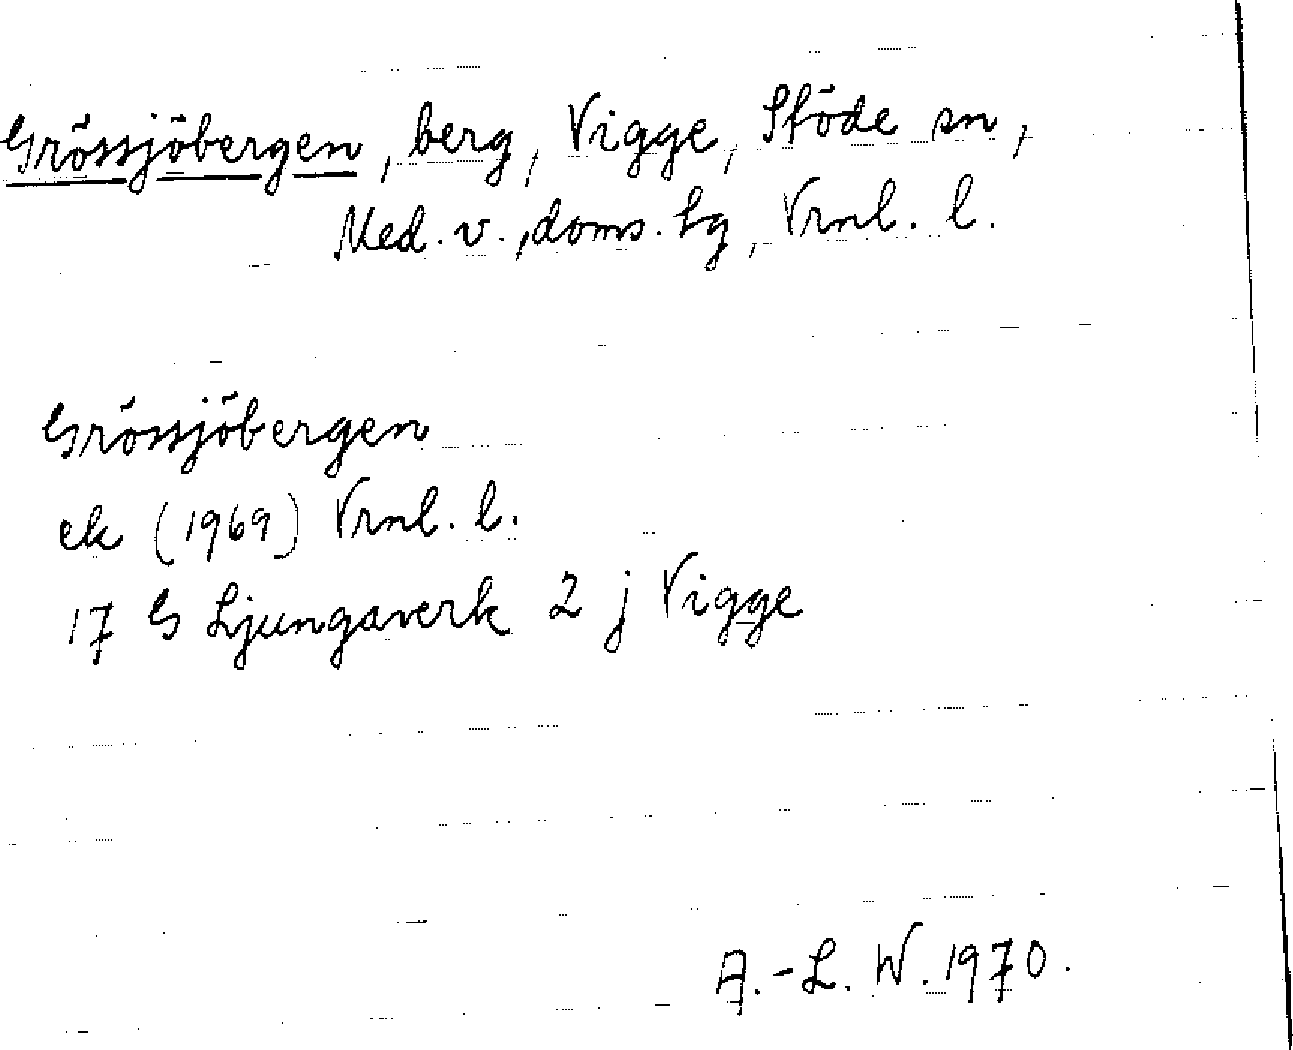 Grössjöbergen, berg, Vigge, Stöde sn,
Med. v., doms. hg, Vrnl. l.
Grössjöbergen
ek (1969) Vrnl. l.
17 G Ljungaverk 2 j Vigge
A.-L. W. 1970.